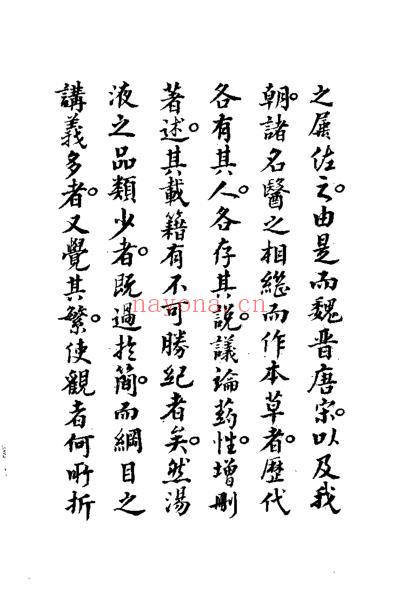 之屬佐之。由是而魏晋唐宋。以及我
朝。諸名醫之相繼而作本草者。歷代
各有其人。各存其說。議論药性。增刪
著述。其載籍有不可勝紀者矣。然湯
液之品類少者。既過扵簡。而綱目之
講義多者。又覺其繁。使觀者何所折
nayona.cn